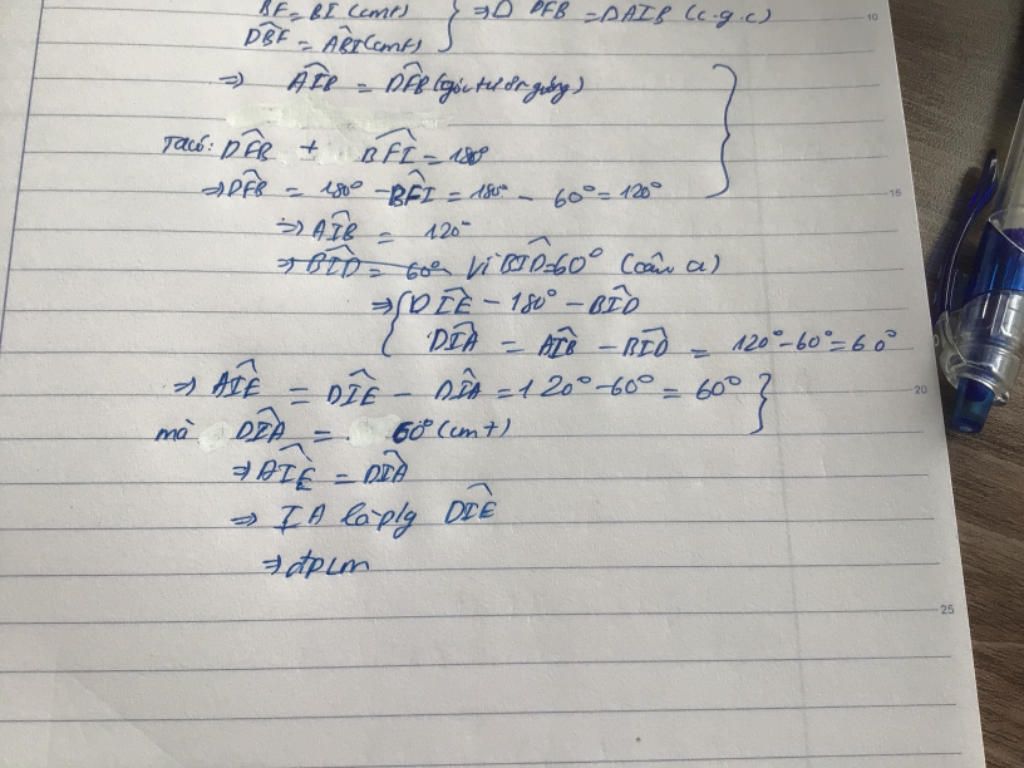 BF = BI (cmt) } ⇒ Δ DFB = ΔAIB (c.g.c) 10
DBF = ABI (cmt)
⇒ AIB = DFB (góc tương ứng)
Ta có: DFB + BFI = 180°
⇒ DFB = 180° - BFI = 180° - 60° = 120° 15
⇒ AIB = 120°
⇒ BID = 60° Vì BID = 60° (câu a)
⇒ { DIE - 180° - BID
DIA = AIB - BID = 120° - 60° = 60°
⇒ AIE = DIE - DIA = 120° - 60° = 60° } 20
mà DIA = 60° (cmt)
⇒ AIE = DIA
⇒ IA là p/g DIE
⇒ đpcm
25